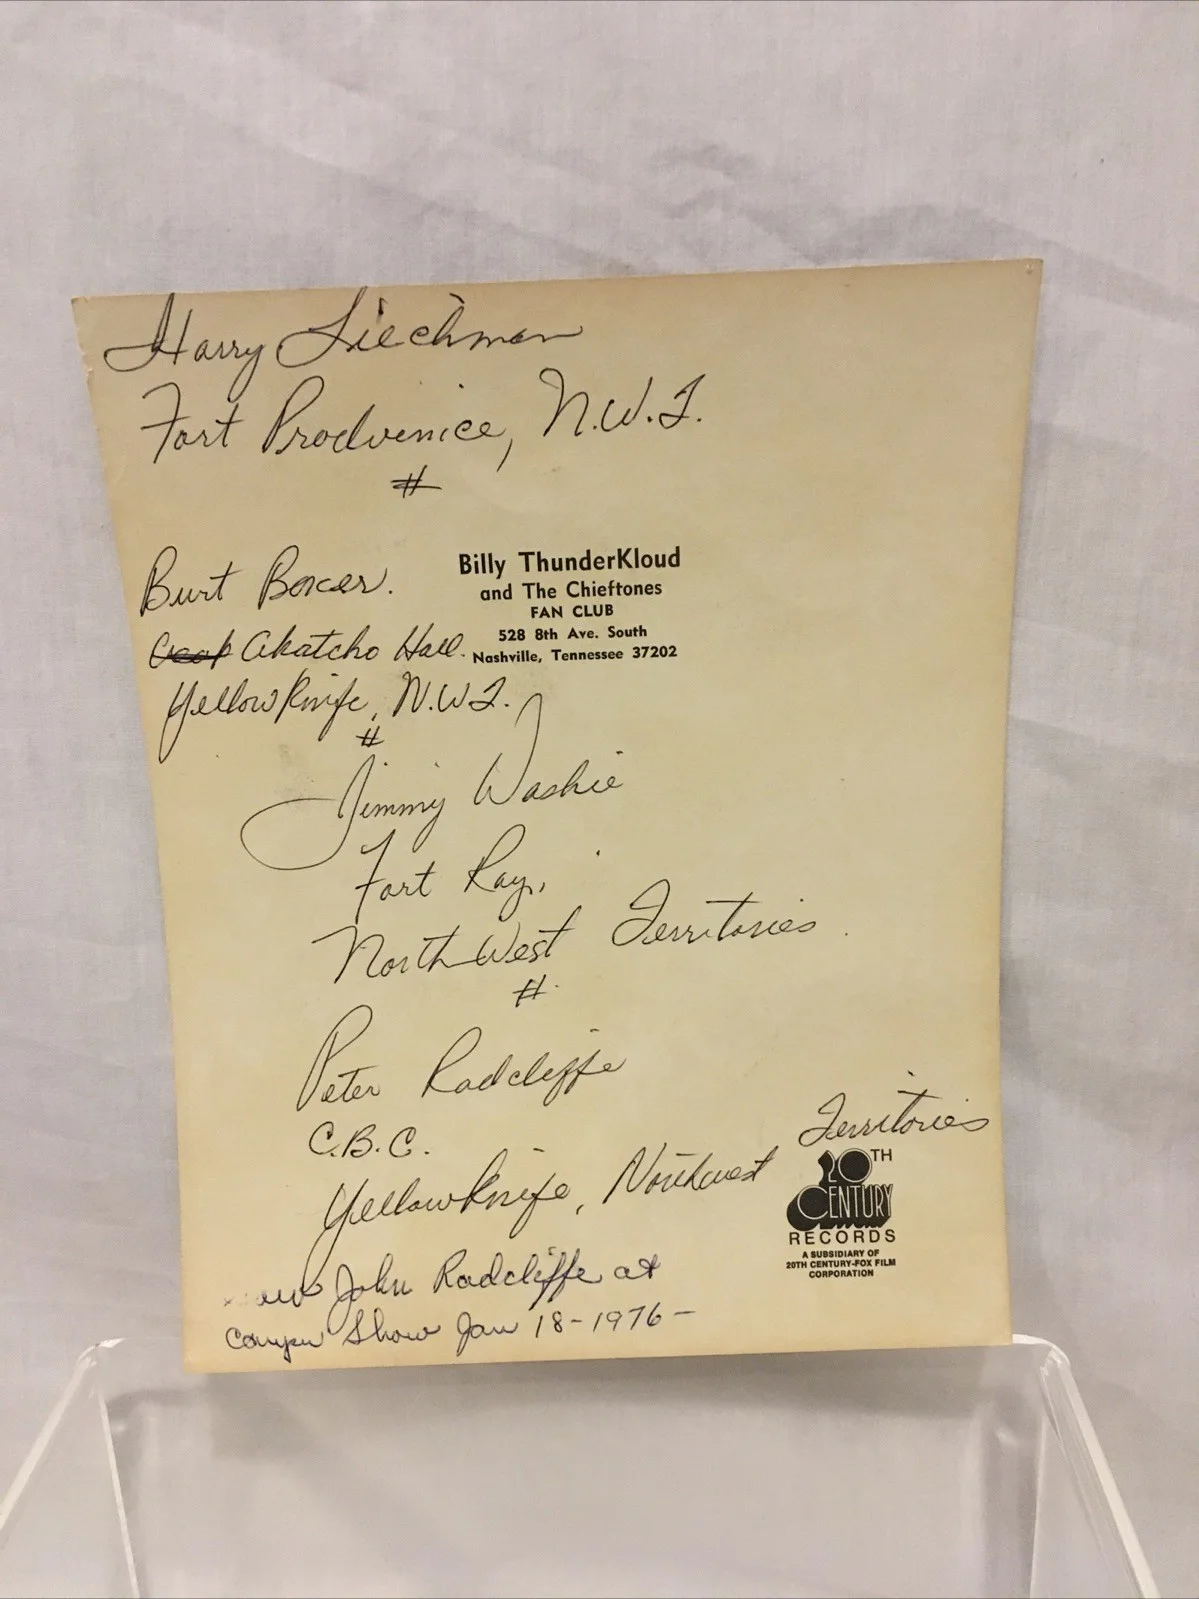 Harry Liechman
Fort Prodvenice, N.W.T.
#
Billy ThunderKloud
and The Chieftones
FAN CLUB
528 8th Ave. South
Nashville, Tennessee 37202
Burt Boxer.
Akatcho Hall.
YellowKnife, N.W.T.
#
Jimmy Washie
Fort Ray,
NorthWest Territories.
#
Peter Radcliffe
C.B.C.
YellowKnife, Northwest Territories
20TH
CENTURY
RECORDS
A SUBSIDIARY OF
20TH CENTURY-FOX FILM
CORPORATION
John Radcliffe at
Show Jan 18-1976-